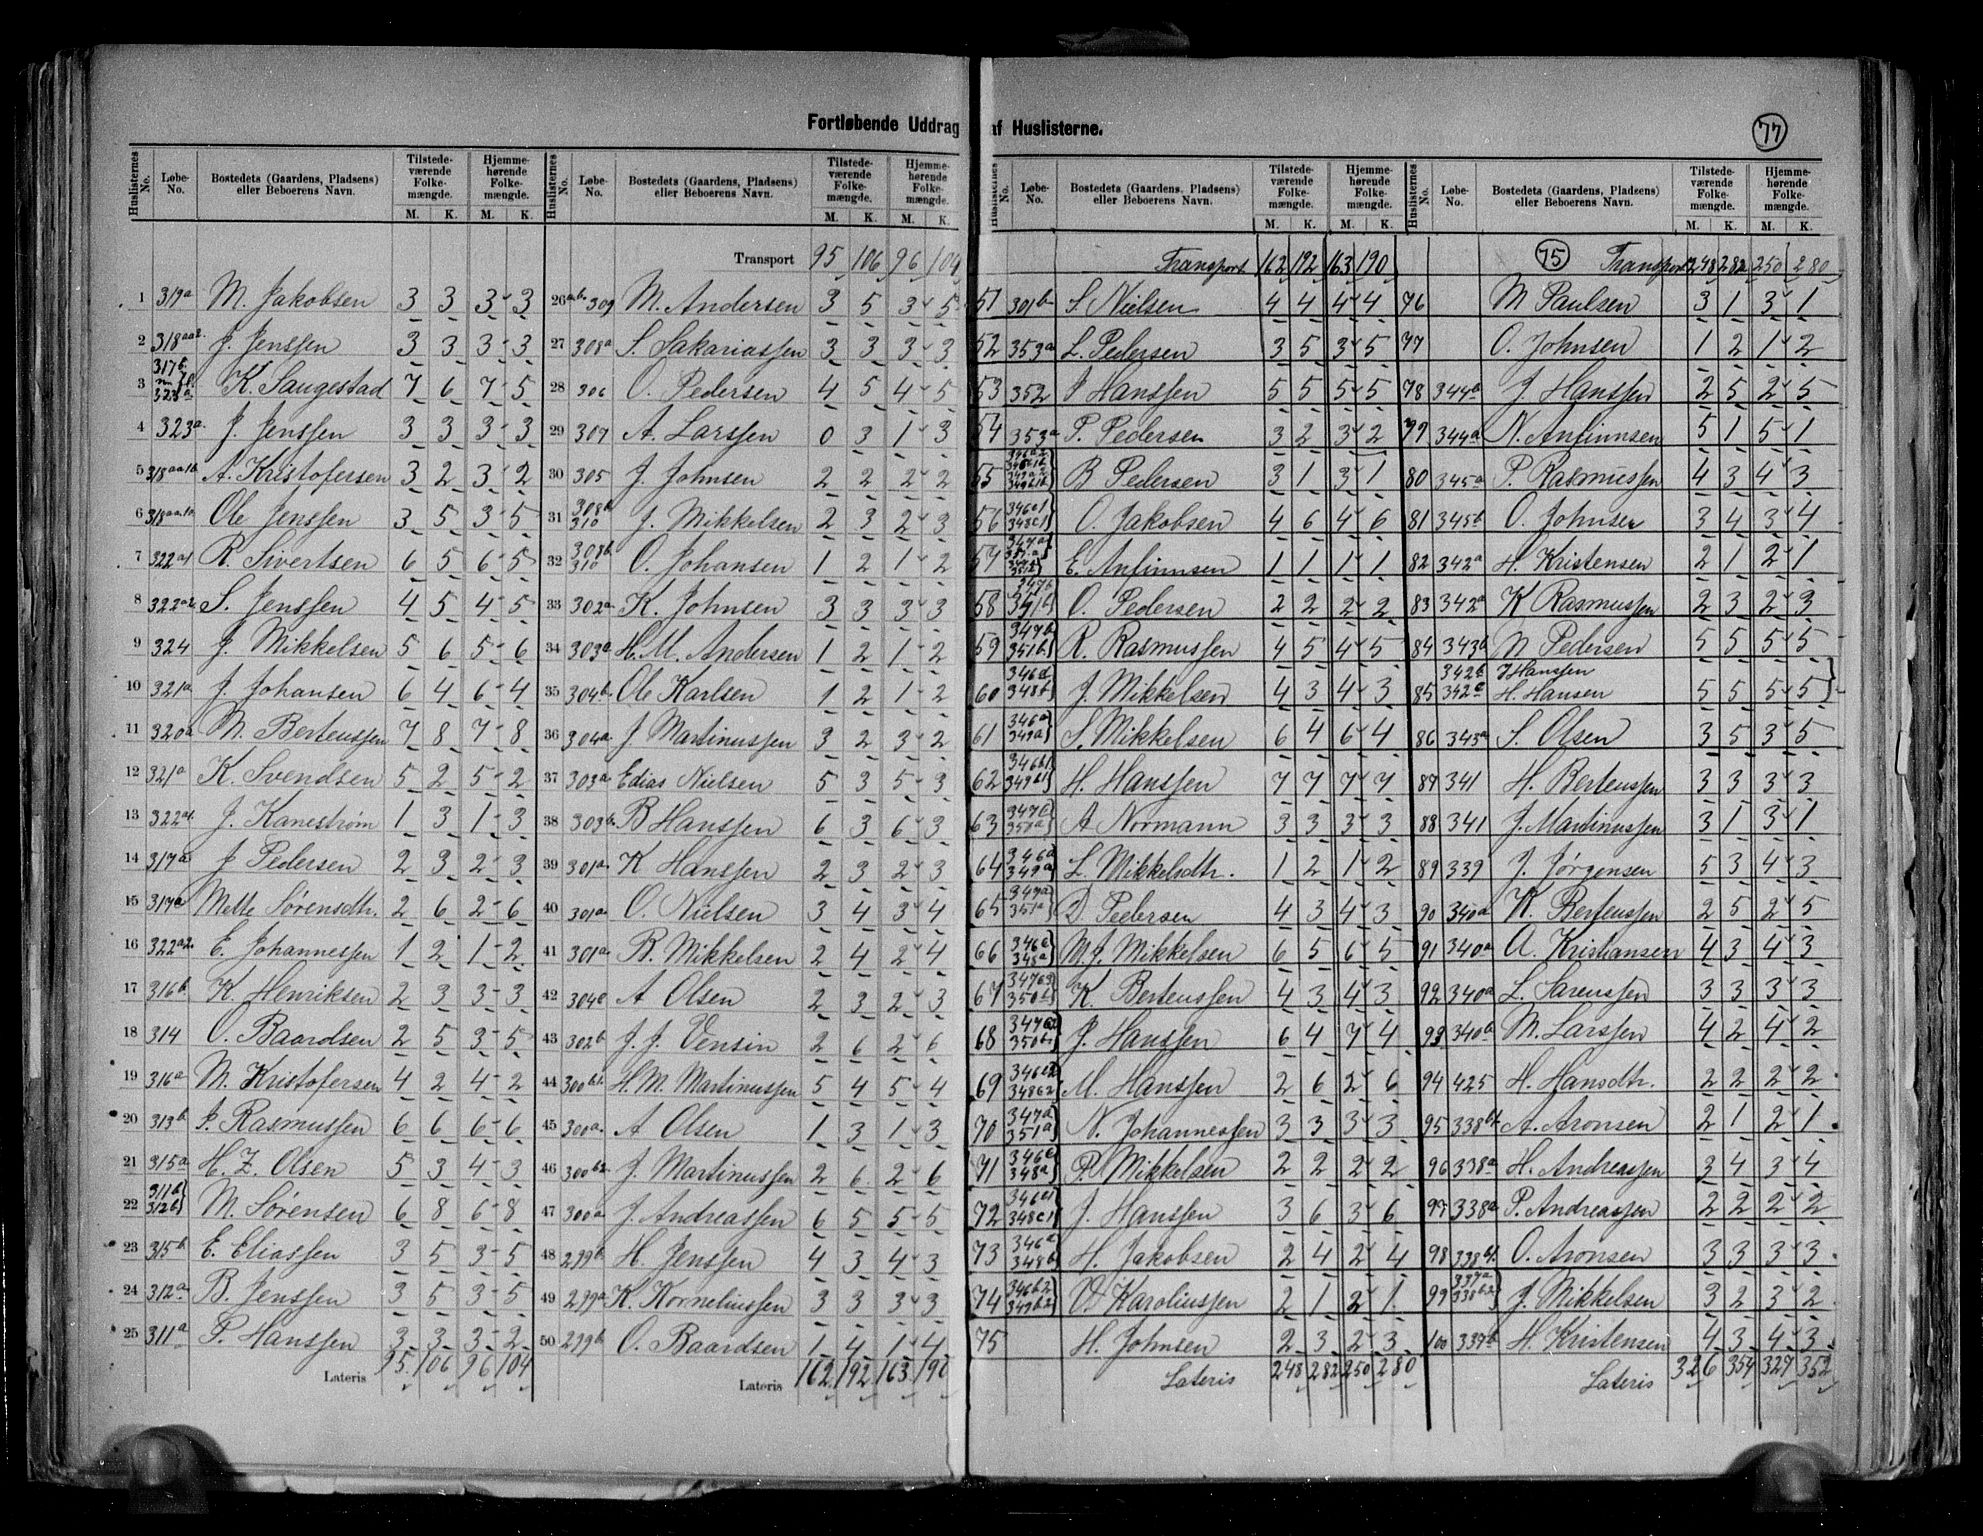 Fortløbende Uddrag af Huslisterne.
77
Huslisternes No. Løbe-No. Bostedets (Gaardens, Pladsens) eller Beboerens Navn. Tilstedeværende Folkemængde. M. K. Hjemmehørende Folkemængde. M. K.
1 319a M. Jakobsen 3 3 3 3
2 318aa2 J. Jenssen 3 3 3 3
3 317b K. Saugestad 7 6 7 5
4 323a J. Jenssen 3 3 3 3
5 318aa1b A. Kristofersen 3 2 3 2
6 318aa1a Ole Jenssen 3 5 3 5
7 322a1 R. Sivertsen 6 5 6 5
8 322a2 S. Jenssen 4 5 4 5
9 324 J. Mikkelsen 5 6 5 6
10 321a J. Johansen 6 4 6 4
11 320a M. Berteussen 7 8 7 8
12 321a K. Svendsen 5 2 5 2
13 322a1 J. Kanestrøm 1 3 1 3
14 317a J. Pedersen 2 3 2 3
15 317a Mette Sørensdtr. 2 6 2 6
16 322a2 E. Johannessen 1 2 1 2
17 316b K. Henriksen 2 3 3 3
18 314 O. Baardsen 2 5 3 5
19 316a M. Kristofersen 4 2 4 2
20 313b J. Rasmussen 6 6 6 6
21 315a H. Z. Olsen 5 3 4 3
22 311b 312b } M. Sørensen 6 8 6 8
23 315b E. Eliassen 3 5 3 5
24 312a B. Jenssen 3 5 3 5
25 311a P. Hanssen 3 3 3 2
Lateris 95 106 96 104
Huslisternes No. Løbe-No. Bostedets (Gaardens, Pladsens) eller Beboerens Navn. Tilstedeværende Folkemængde. M. K. Hjemmehørende Folkemængde. M. K.
Transport 95 106 96 104
26 309 M. Andersen 3 5 3 5
27 308a S. Sakariassen 3 3 3 3
28 306 O. Pedersen 4 5 4 5
29 309 A. Larssen 0 3 1 3
30 305 J. Johnsen 2 2 2 2
31 308a 310 J. Mikkelsen 2 3 2 3
32 308b 310 O. Johansen 1 2 1 2
33 302a K. Johnsen 3 3 3 3
34 303a H. M. Andersen 1 2 1 2
35 304b Ole Karlsen 1 2 1 2
36 304a J. Martinussen 3 2 3 2
37 303a Edias Nielsen 5 3 5 3
38 303b B Hanssen 6 3 6 3
39 301a K Hanssen 2 3 2 3
40 301a O. Nielsen 3 4 3 4
41 301a B. Mikkelsen 2 4 2 4
42 304c A Olsen 2 3 2 3
43 302b J. J. Vensin 2 6 2 6
44 300b1 H. M. Martinussen 5 4 5 4
45 300a A Olsen 1 3 1 3
46 300b2 J. Martinussen 2 6 2 6
47 300a J. Andreassen 6 5 5 5
48 299b H. Jenssen 4 3 4 3
49 299a K. Korneliussen 3 3 3 3
50 299b O. Baardsen 1 4 1 4
Lateris 162 192 163 190
Huslisternes No. Løbe-No. Bostedets (Gaardens, Pladsens) eller Beboerens Navn. Tilstedeværende Folkemængde. M. K. Hjemmehørende Folkemængde. M. K.
Transport 162 192 163 190
51 301b S. Nielsen 4 4 4 4
52 353a L. Pedersen 3 5 3 5
53 352 P Hanssen 5 5 5 5
54 353a P. Pedersen 3 2 3 2
55 B Pedersen 3 1 3 1
56 346c1 348c1 } O. Jakobsen 4 6 4 6
57 E. Anfinnsen 1 1 1 1
58 347b 351b O. Pedersen 2 2 2 2
59 347b 351b } R. Rasmussen 4 5 4 5
60 346d 348b } J. Mikkelsen 4 3 4 3
61 346a 349a } S. Mikkelsen 6 4 6 4
62 346b1 349b1 } H. Hanssen 7 7 7 7
63 347c 350a } A Normann 3 3 3 3
64 346a 349a } L. Mikkelsdtr. 1 2 1 2
65 347a 351a } D. Pedersen 4 3 4 3
66 346c 348a } M J. Mikkelsen 6 5 6 5
67 K Berteussen 4 3 4 3
68 J. Hanssen 6 4 7 4
69 346c2 348c2 } M. Hanssen 2 6 2 6
70 347a 351a } N. Johannessen 3 3 3 3
71 346c 348a } P. Mikkelsen 2 2 2 2
72 346c1 348c1 } J. Hanssen 3 6 3 6
73 346a 348b } H. Jakobsen 2 4 2 4
74 346b2 349b2 } O Karoliussen 2 1 2 1
75 H. Johnsen 2 3 2 3
Lateris 248 282 250 280
Huslisternes No. Løbe-No. Bostedets (Gaardens, Pladsens) eller Beboerens Navn. Tilstedeværende Folkemængde. M. K. Hjemmehørende Folkemængde. M. K.
75 Transport 248 282 250 280
76 M Paulsen 3 1 3 1
77 O. Johnsen 1 2 1 2
78 344b J. Hanssen 2 5 2 5
79 344a N. Anfinnsen 5 1 5 1
80 345a P. Rasmussen 4 3 4 3
81 345b O. Johnsen 3 4 3 4
82 342a H. Kristensen 2 1 2 1
83 342a K Rasmussen 2 3 2 3
84 343b N Pedersen 5 5 5 5
85 342b J Hanssen
342c H. Hansen 5 5 5 5 }
86 343a S. Olsen 3 5 3 5
87 341 H. Berteussen 3 3 3 3
88 341 J. Martinussen 3 1 3 1
89 339 J. Jørgensen 5 3 4 3
90 340a K. Berteussen 2 5 2 5
91 340a A. Kristiansen 4 3 4 3
92 340a L. Sarenssen 3 3 3 3
93 340b M. Larssen 4 2 4 2
94 425 H. Hansdtr. 2 2 2 2
95 338b1 A. Aronsen 2 1 2 1
96 338a H. Andreassen 3 4 3 4
97 338a P. Andreassen 2 2 2 2
98 338b1 O. Aronsen 3 3 3 3
99 337a 338b2 } J. Mikkelsen 3 2 3 2
100 337b H. Kristensen 4 3 4 3
Lateris 326 354 327 352